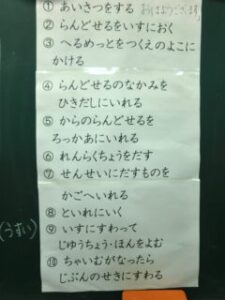 ① あいさつをする おはようございます
② らんどせるをいすにおく
③ へるめっとをつくえのよこに
かける
④ らんどせるのなかみを
ひきだしにいれる
⑤ からのらんどせるを
ろっかあにいれる
⑥ れんらくちょうをだす
⑦ せんせいにだすものを
かごへいれる
⑧ といれにいく
(うすい)
⑨ いすにすわって
じゆうちょう・ほんをよむ
⑩ ちゃいむがなったら
じぶんのせきにすわる